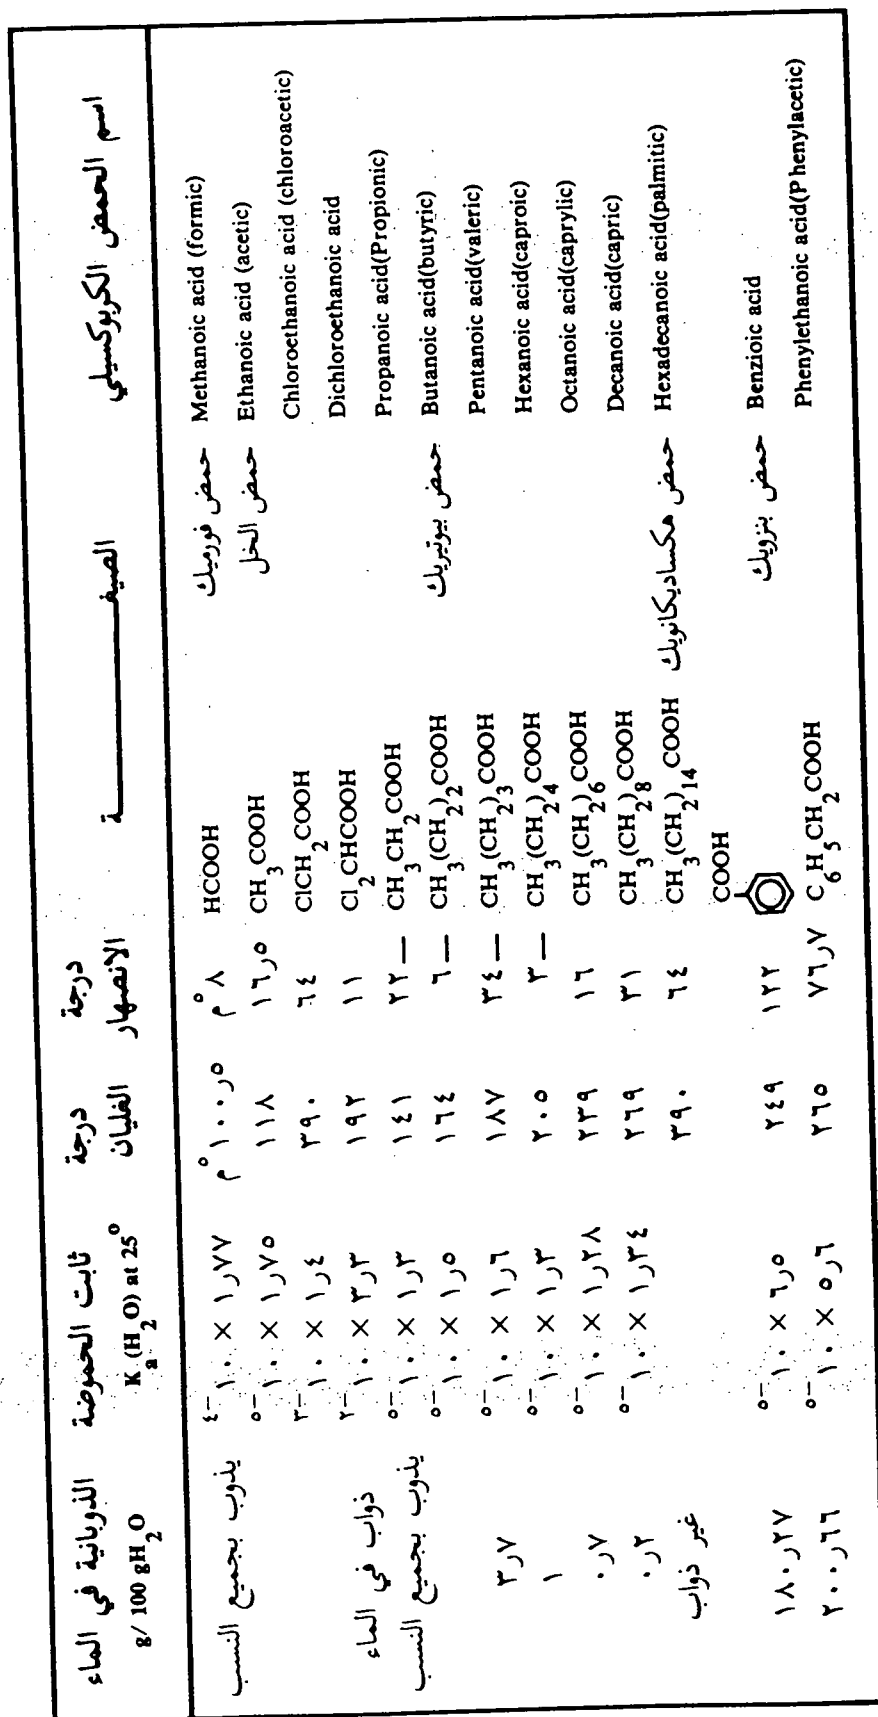 اسم الحمض الكربوكسيلي الصيغـــــة درجة الانصهار درجة الغليان ثابت الحموضة Ka (H2O) at 25° الذوبانية في الماء g/ 100 gH2O
Methanoic acid (formic) حمض فورميك HCOOH ٨ °م ١٠٠ر٥ °م ١ر٧٧ × ١٠-٤ يذوب بجميع النسب
Ethanoic acid (acetic) حمض الخل CH3COOH ١٦ر٥ ١١٨ ١ر٧٥ × ١٠-٥
Chloroethanoic acid (chloroacetic) ClCH2COOH ٦٤ ٣٩٠ ١ر٤ × ١٠-٣
Dichloroethanoic acid Cl2CHCOOH ١١ ١٩٢ ٣ر٣ × ١٠-٢ ذواب في الماء
Propanoic acid(Propionic) CH3CH2COOH —٢٢ ١٤١ ١ر٣ × ١٠-٥ يذوب بجميع النسب
Butanoic acid(butyric) حمض بيوتيريك CH3(CH2)2COOH —٦ ١٦٤ ١ر٥ × ١٠-٥
Pentanoic acid(valeric) CH3(CH2)3COOH —٣٤ ١٨٧ ١ر٦ × ١٠-٥ ٣ر٧
Hexanoic acid(caproic) CH3(CH2)4COOH —٣ ٢٠٥ ١ر٣ × ١٠-٥ ١
Octanoic acid(caprylic) CH3(CH2)6COOH ١٦ ٢٣٩ ١ر٢٨ × ١٠-٥ ٠ر٧
Decanoic acid(capric) CH3(CH2)8COOH ٣١ ٢٦٩ ١ر٣٤ × ١٠-٥ ٠ر٢
Hexadecanoic acid(palmitic) حمض هكساديكانويك CH3(CH2)14COOH ٦٤ ٣٩٠ غير ذواب
Benzioic acid حمض بنزويك COOH ١٢٢ ٢٤٩ ٦ر٥ × ١٠-٥ ١٨٠ر٢٧
Phenylethanoic acid(Phenylacetic) C6H5CH2COOH ٧٦ر٧ ٢٦٥ ٥ر٦ × ١٠-٥ ٢٠٠ر٦٦